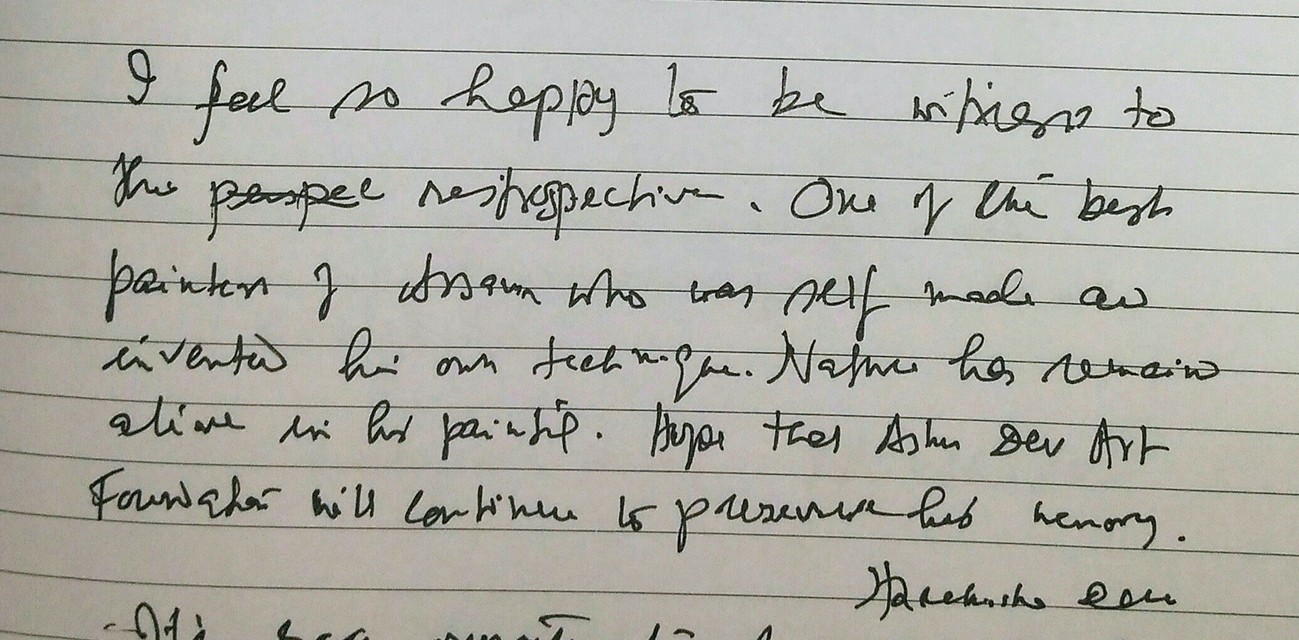 I feel so happy to be witness to
the retrospective. One of the best
painters of Assam who was self made and
invented his own technique. Nature has remained
alive in his painting. Hope that Ashu Dev Art
Foundation will continue to preserve his memory.